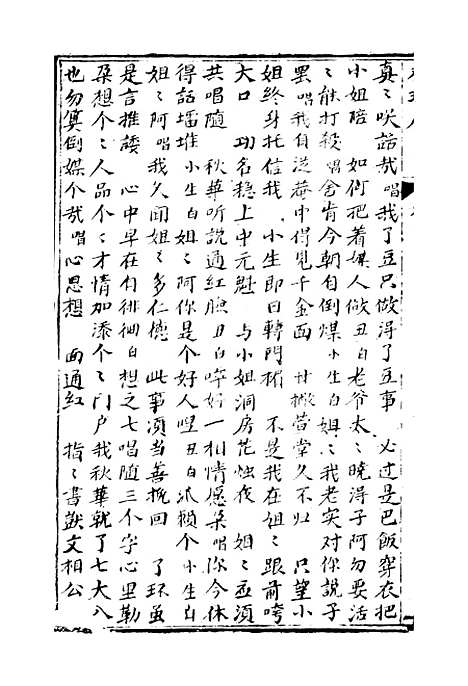 真〻咲話哉唱我了豆只做得了豆事 必过是巴飯穿衣把
小姐陪 如何把着媒人做丑白老爷太〻曉得子阿勿要活
〻能打殺唱舍肯今朝自倒煤小生白姐〻我老实对你說子
罢唱我自従菴中得見千金面 甘撇萱堂久不归 只望小
姐終身托信我 小生即日轉門楣 不是我在姐〻跟前啈
大口 功名穏上中元魁 与小姐洞房花燭夜 姐〻亟須
共唱随 秋華听說通紅臉丑白啐好一相情愿朵唱你今休
得話堛堆 小生白姐〻阿你是个好人哩丑白派賴个小生白
姐〻阿唱我久闻姐〻多仁德 此事須当善挽回 了环虽
是言推諉 心中早在自徘徊白想之七唱随三个字心里勒
朶想个〻人品个〻才情加添个〻门户我秋華就了七大八
也勿算倒媒个哉唱心思想 面通紅 指〻書獃文相公